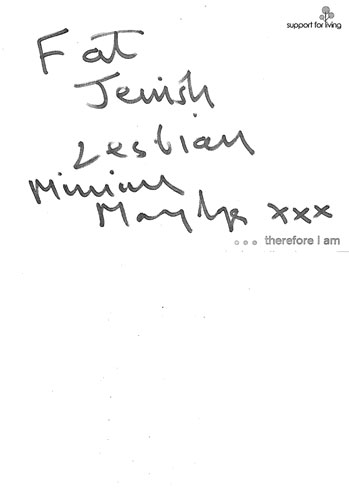 support for living
Fat
Jewish
Lesbian
Miriam
Margolyes xxx
... therefore I am